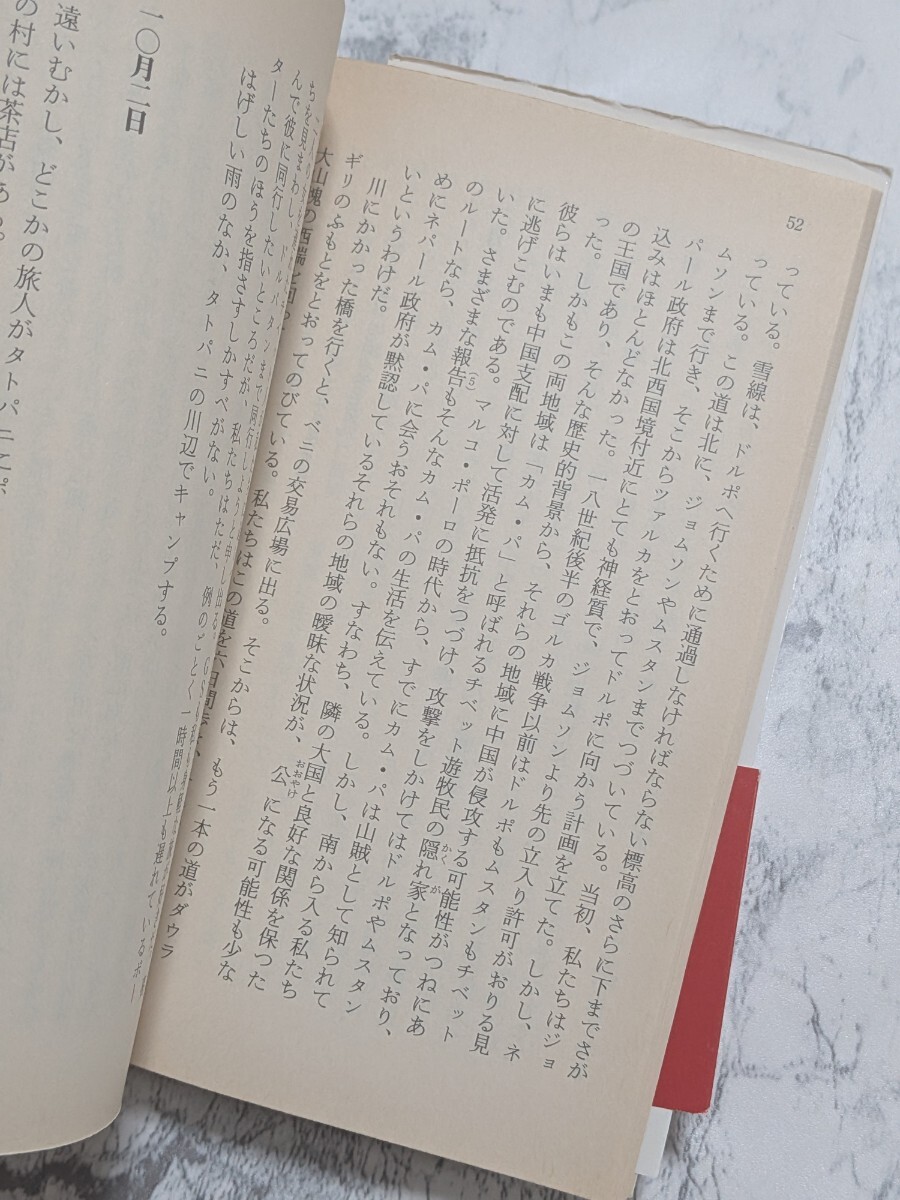 52
っている。雪線は、ドルポへ行くために通過しなければならない標高のさらに下までさが
っている。この道は北に、ジョムソンやムスタンまでつづいている。当初、私たちはジョ
ムソンまで行き、そこからツァルカをとおってドルポに向かう計画を立てた。しかし、ネ
パール政府は北西国境付近にとても神経質で、ジョムソンより先の立入り許可がおりる見
込みはほとんどなかった。一八世紀後半のゴルカ戦争以前はドルポもムスタンもチベット
の王国であり、そんな歴史的背景から、それらの地域に中国が侵攻する可能性がつねにあ
った。しかもこの両地域は「カム・パ」と呼ばれるチベット遊牧民の隠れ家となっており、
彼らはいまも中国支配に対して活発に抵抗をつづけ、攻撃をしかけてはドルポやムスタン
に逃げこむのである。マルコ・ポーロの時代から、すでにカム・パは山賊として知られて
いた。さまざまな報告(5)もそんなカム・パの生活を伝えている。しかし、南から入る私たち
のルートなら、カム・パに会うおそれもない。すなわち、隣の大国と良好な関係を保つた
めにネパール政府が黙認しているそれらの地域の曖昧な状況が、公になる可能性も少な
いというわけだ。
川にかかった橋を行くと、ベニの交易広場に出る。そこからは、もう一本の道がダウラ
ギリのふもとをとおってのびている。私たちはこの道を六日間
大山塊の西端
ちを見まわし、ドルパタンまで同行しようと申し出る。GS
んで彼に同行したいところだが、私たちはただ、例のごとく一時間以上も遅れているポー
ターたちのほうを指さすしかすべがない。
はげしい雨のなか、タトパニの川辺でキャンプする。
一〇月二日
遠いむかし、どこかの旅人がタトパニ
の村には茶店がある。